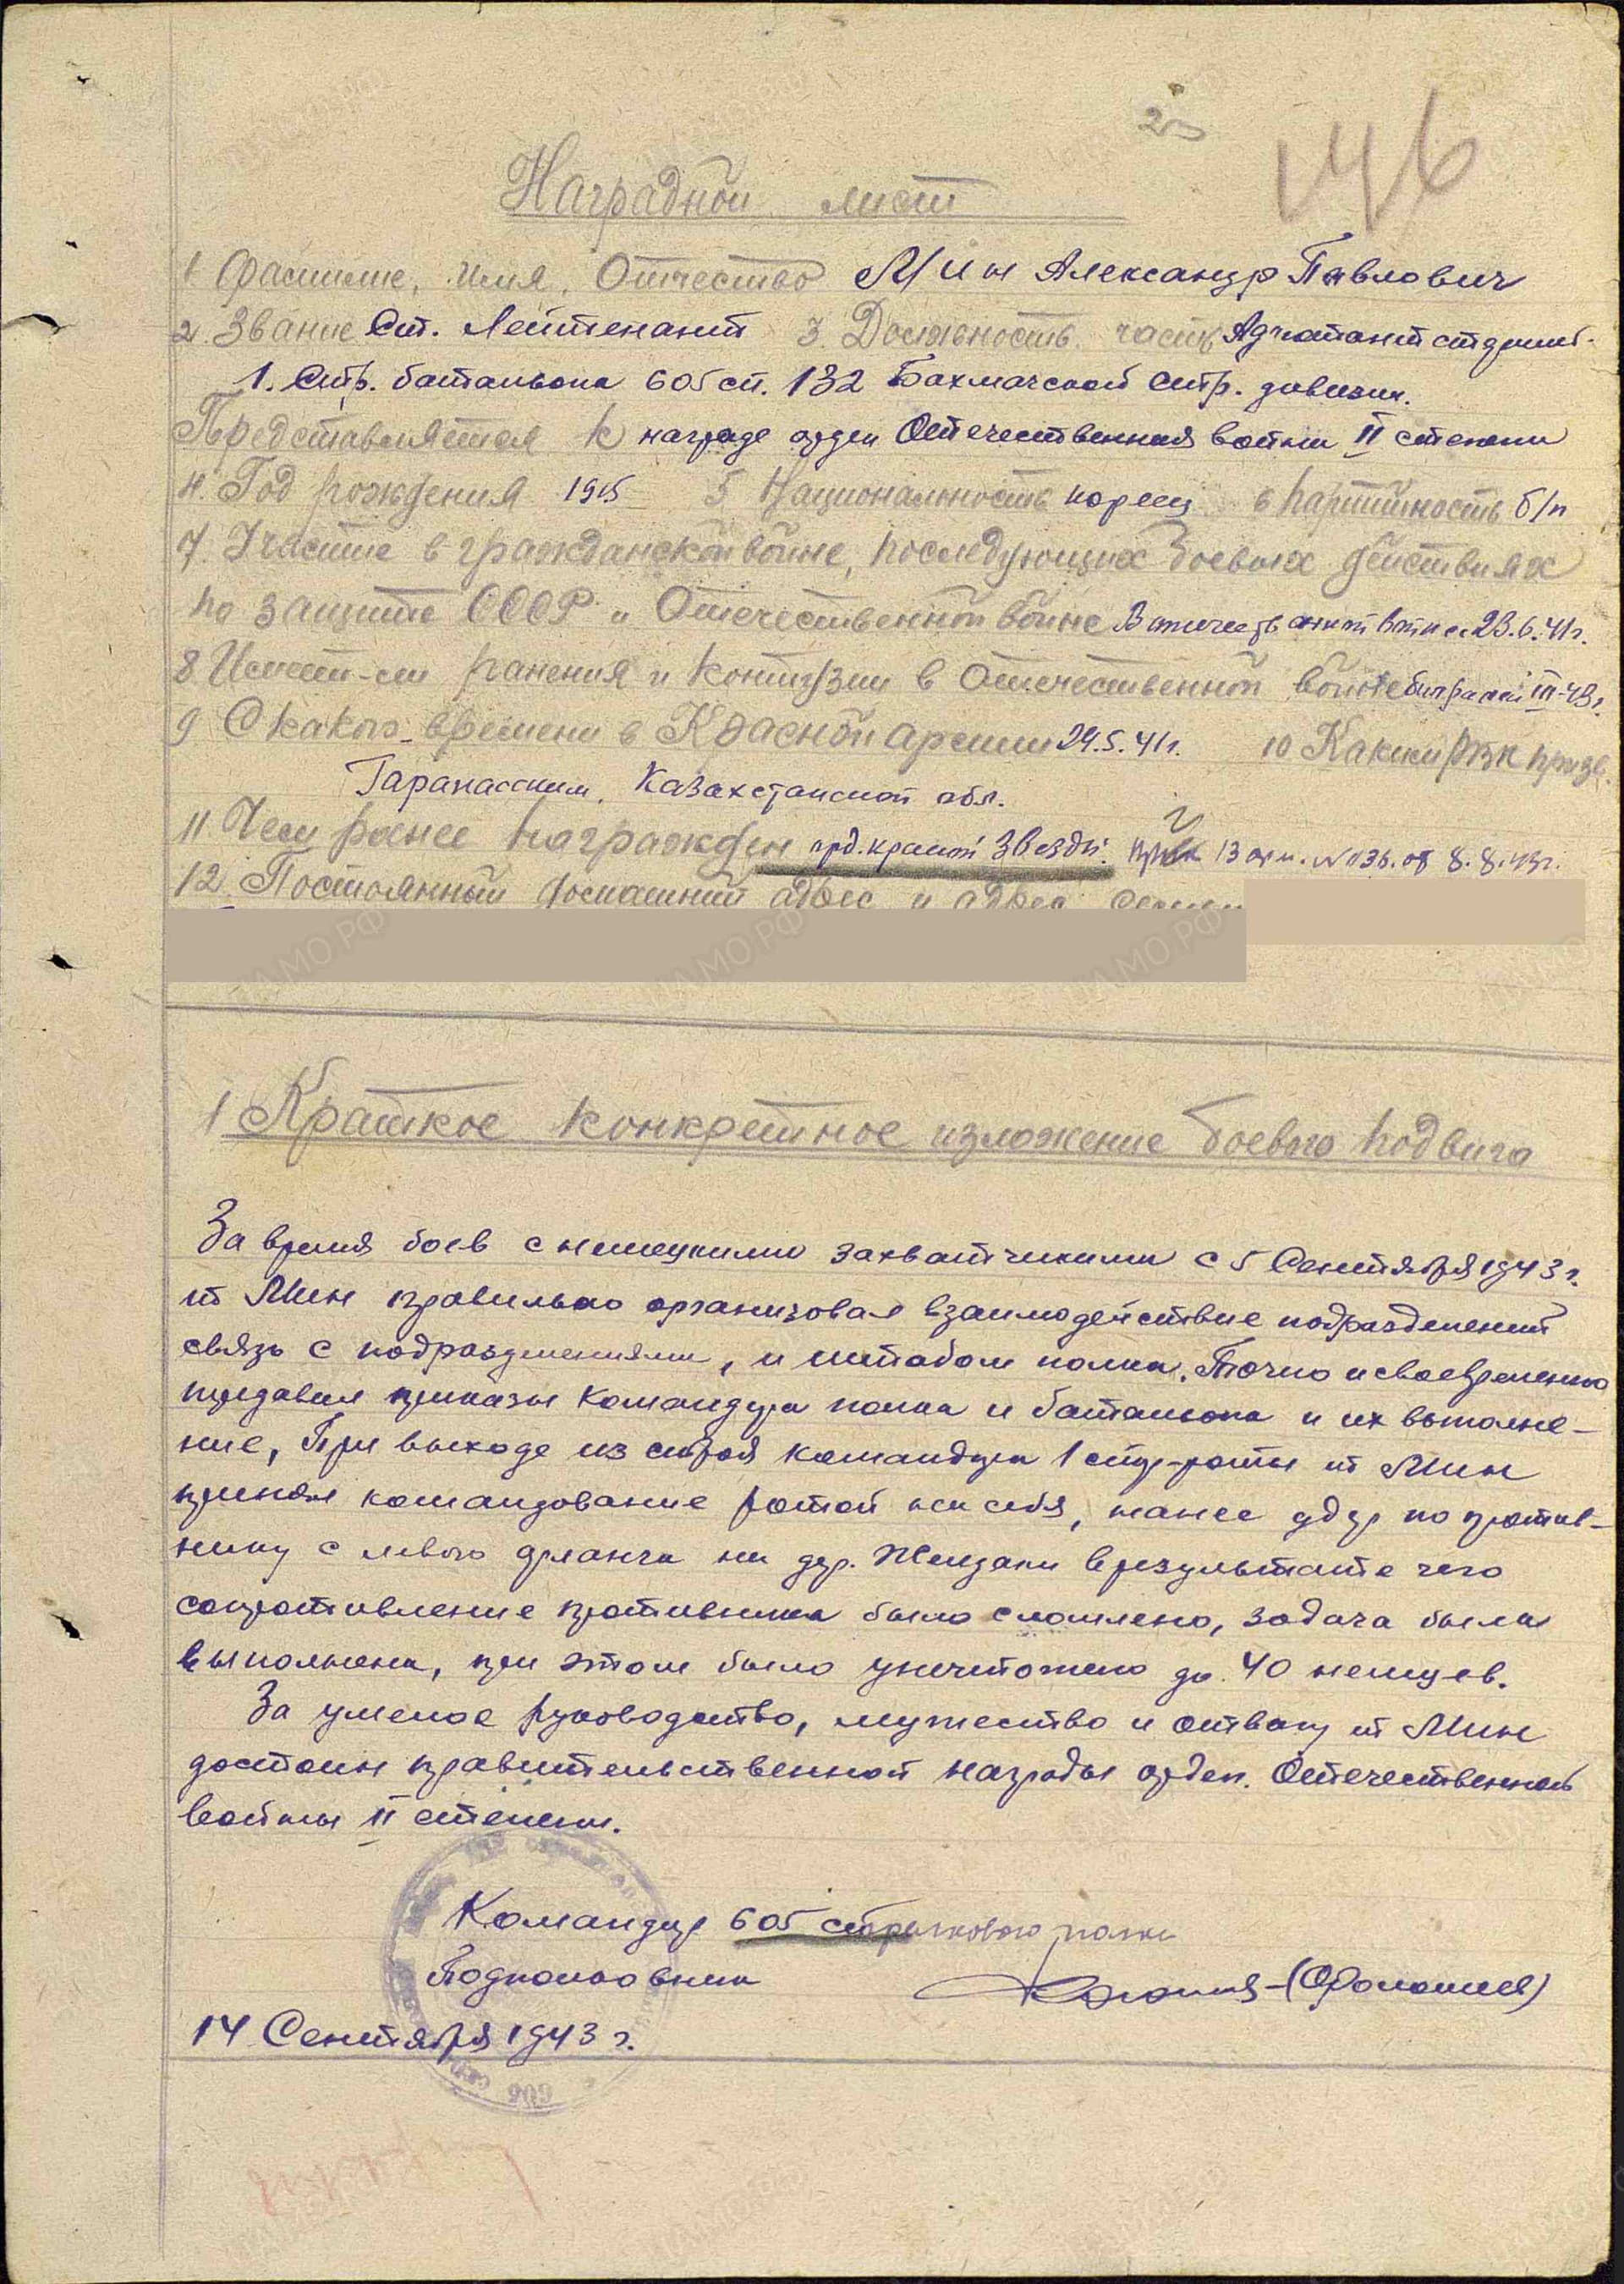 25
146
Наградной лист
1 Фамилие, имя, Отчество Мин Александр Павлович
2. Звание Ст. Лейтенант 3. Должность. часть Адъютант старший
1. Стр. батальона 605 сп. 132 Бахмачской стр. дивизии.
Представляется к награде орден Отечественная война II степени
4. Год рождения 1915 5 Национальность кореец 6 партийность б/п
7. Участие в гражданской войне, последующих боевых действиях
по защите СССР и Отечественной войне В отечественной войне с 23.6.41г.
8 Имеет-ли ранения и контузии в Отечественной войне был ранен III-43г.
9 С какого времени в Красной армии 29.5.41г. 10 Каким РВК призв.
Казахстанской обл.
11. Чем ранее награжден орд. красной звезды. 13 арм. №136. от 8.8.43г.
12. Постоянный домашний адрес и адрес семьи
1 Краткое конкретное изложение боевого подвига
За время боев с немецкими захватчиками с 5 Сентября 1943 г.
ст Мин правильно организовал взаимодействие подразделений
связь с подразделениями, и штабом полка. Точно и своевременно
предавал приказы командира полка и батальона и их выполне-
ние, При выходе из строя командира 1 стр-роты ст Мин
принял командование ротой на себя, нанес удар по против-
нику с левого фланга на дер. в результате чего
сопротивление противника было сломлено, задача была
выполнена, при этом было уничтожено до 40 немцев.
За умелое руководство, мужество и отвагу ст Мин
достоин правительственной награды орден. Отечественной
войны II степени.
Командир 605 стрелкового полка
Подполковник
14 Сентября 1943 г.